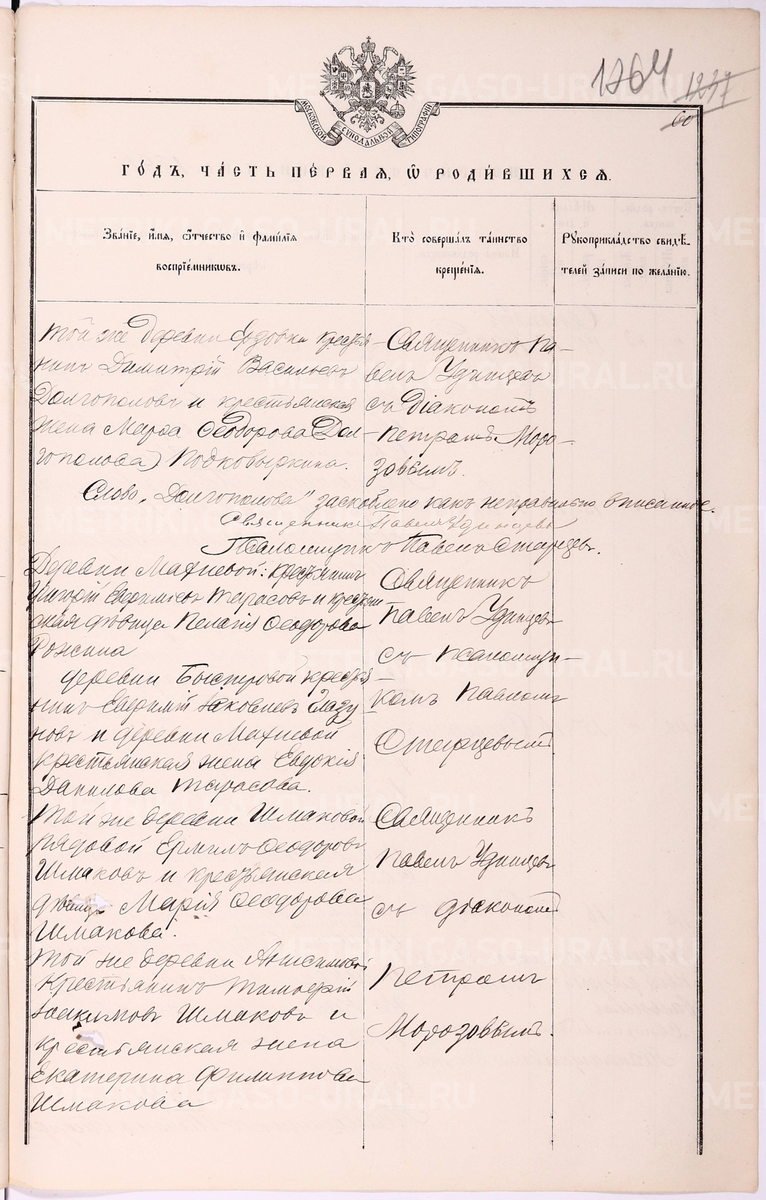 1264
1237
60
МОСКОВСКОЙ СѴНОДАЛЬНОЙ ТИПОГРАФІИ
ГО́ДЪ, ЧА́СТЬ ПЕ́РВАЯ, Ѡ҆ РОДИ́ВШИХСЯ.
Зва́нїе, и҆́мѧ, ѻ҆́тчество и҆ фами́лїѧ
воспрїе́мникѡвъ.
Кто̀ соверша́лъ та́инство
креще́нїѧ.
Рꙋкоприкла́дство свидѣ́-
телей за́писи по жела́нїю.
Той же деревни крестья
нинъ Димитрій Васильевъ
Долгополовъ и крестьянская
жена Марѳа Ѳеодорова Дол-
гополова) Подковыркина.
Священникъ Па-
велъ Удинцевъ
съ Діакономъ
Петромъ Моро-
зовымъ.
Слово „Долгополова" заскоблено какъ неправильно вписанное.
Священникъ Павелъ Удинцевъ
Псаломщикъ Павелъ Старцевъ.
Деревни Махневой: крестьянинъ
Евфиміевъ Тарасовъ и крестьян
ская дѣвица Пелагія Ѳеодорова
Священникъ
Павелъ Удинцевъ
съ псаломщи-
комъ Павломъ
Старцевымъ.
деревни Быстровой крестья
нинъ Евфимій Яковлевъ Глазу
новъ и деревни Махневой
крестьянская жена Евдокія
Данилова Тарасова.
Той же деревни Шмаковой
рядовой Ермилъ Ѳеодоровъ
Шмаковъ и крестьянская
дѣвица Марія Ѳеодорова
Шмакова.
Священникъ
Павелъ Удинцевъ
съ діакономъ
Петромъ
Морозовымъ.
Той же деревни Анисимовой
Крестьянинъ Тимофей
Якимовъ Шмаковъ и
крестьянская жена
Екатерина Филиппова
Шмакова